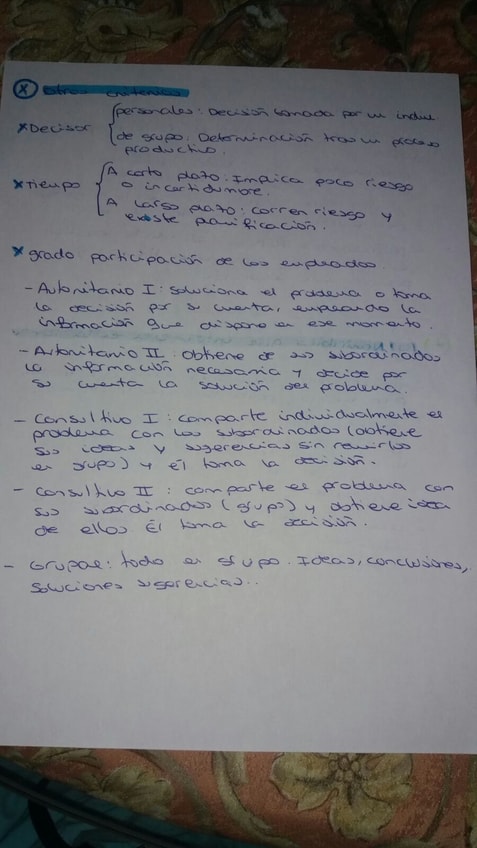 X otros criterios
x Decisor
personales: Decisión tomada por un indiv.
de grupo. Determinación tras un proceso
productivo.
x Tiempo
A corto plazo: Implica poco riesgo
o incertidumbre.
A largo plazo: corren riesgo y
existe planificación.
x grado participación de los empleados
- Autoritario I: soluciona el problema o toma
la decisión por su cuenta, empleando la
información que dispone en ese momento.
- Autoritario II: obtiene de sus subordinados
la información necesaria y decide por
su cuenta la solución del problema.
- Consultivo I: comparte individualmente el
problema con los subordinados (obtiene
sus ideas y sugerencias sin reunirlos
en grupo) y él toma la decisión.
- Consultivo II: comparte el problema con
sus subordinados (grupo) y obtiene idea
de ellos Él toma la decisión.
- Grupal: todo en grupo. Ideas, conclusiones,
soluciones sugerencias..